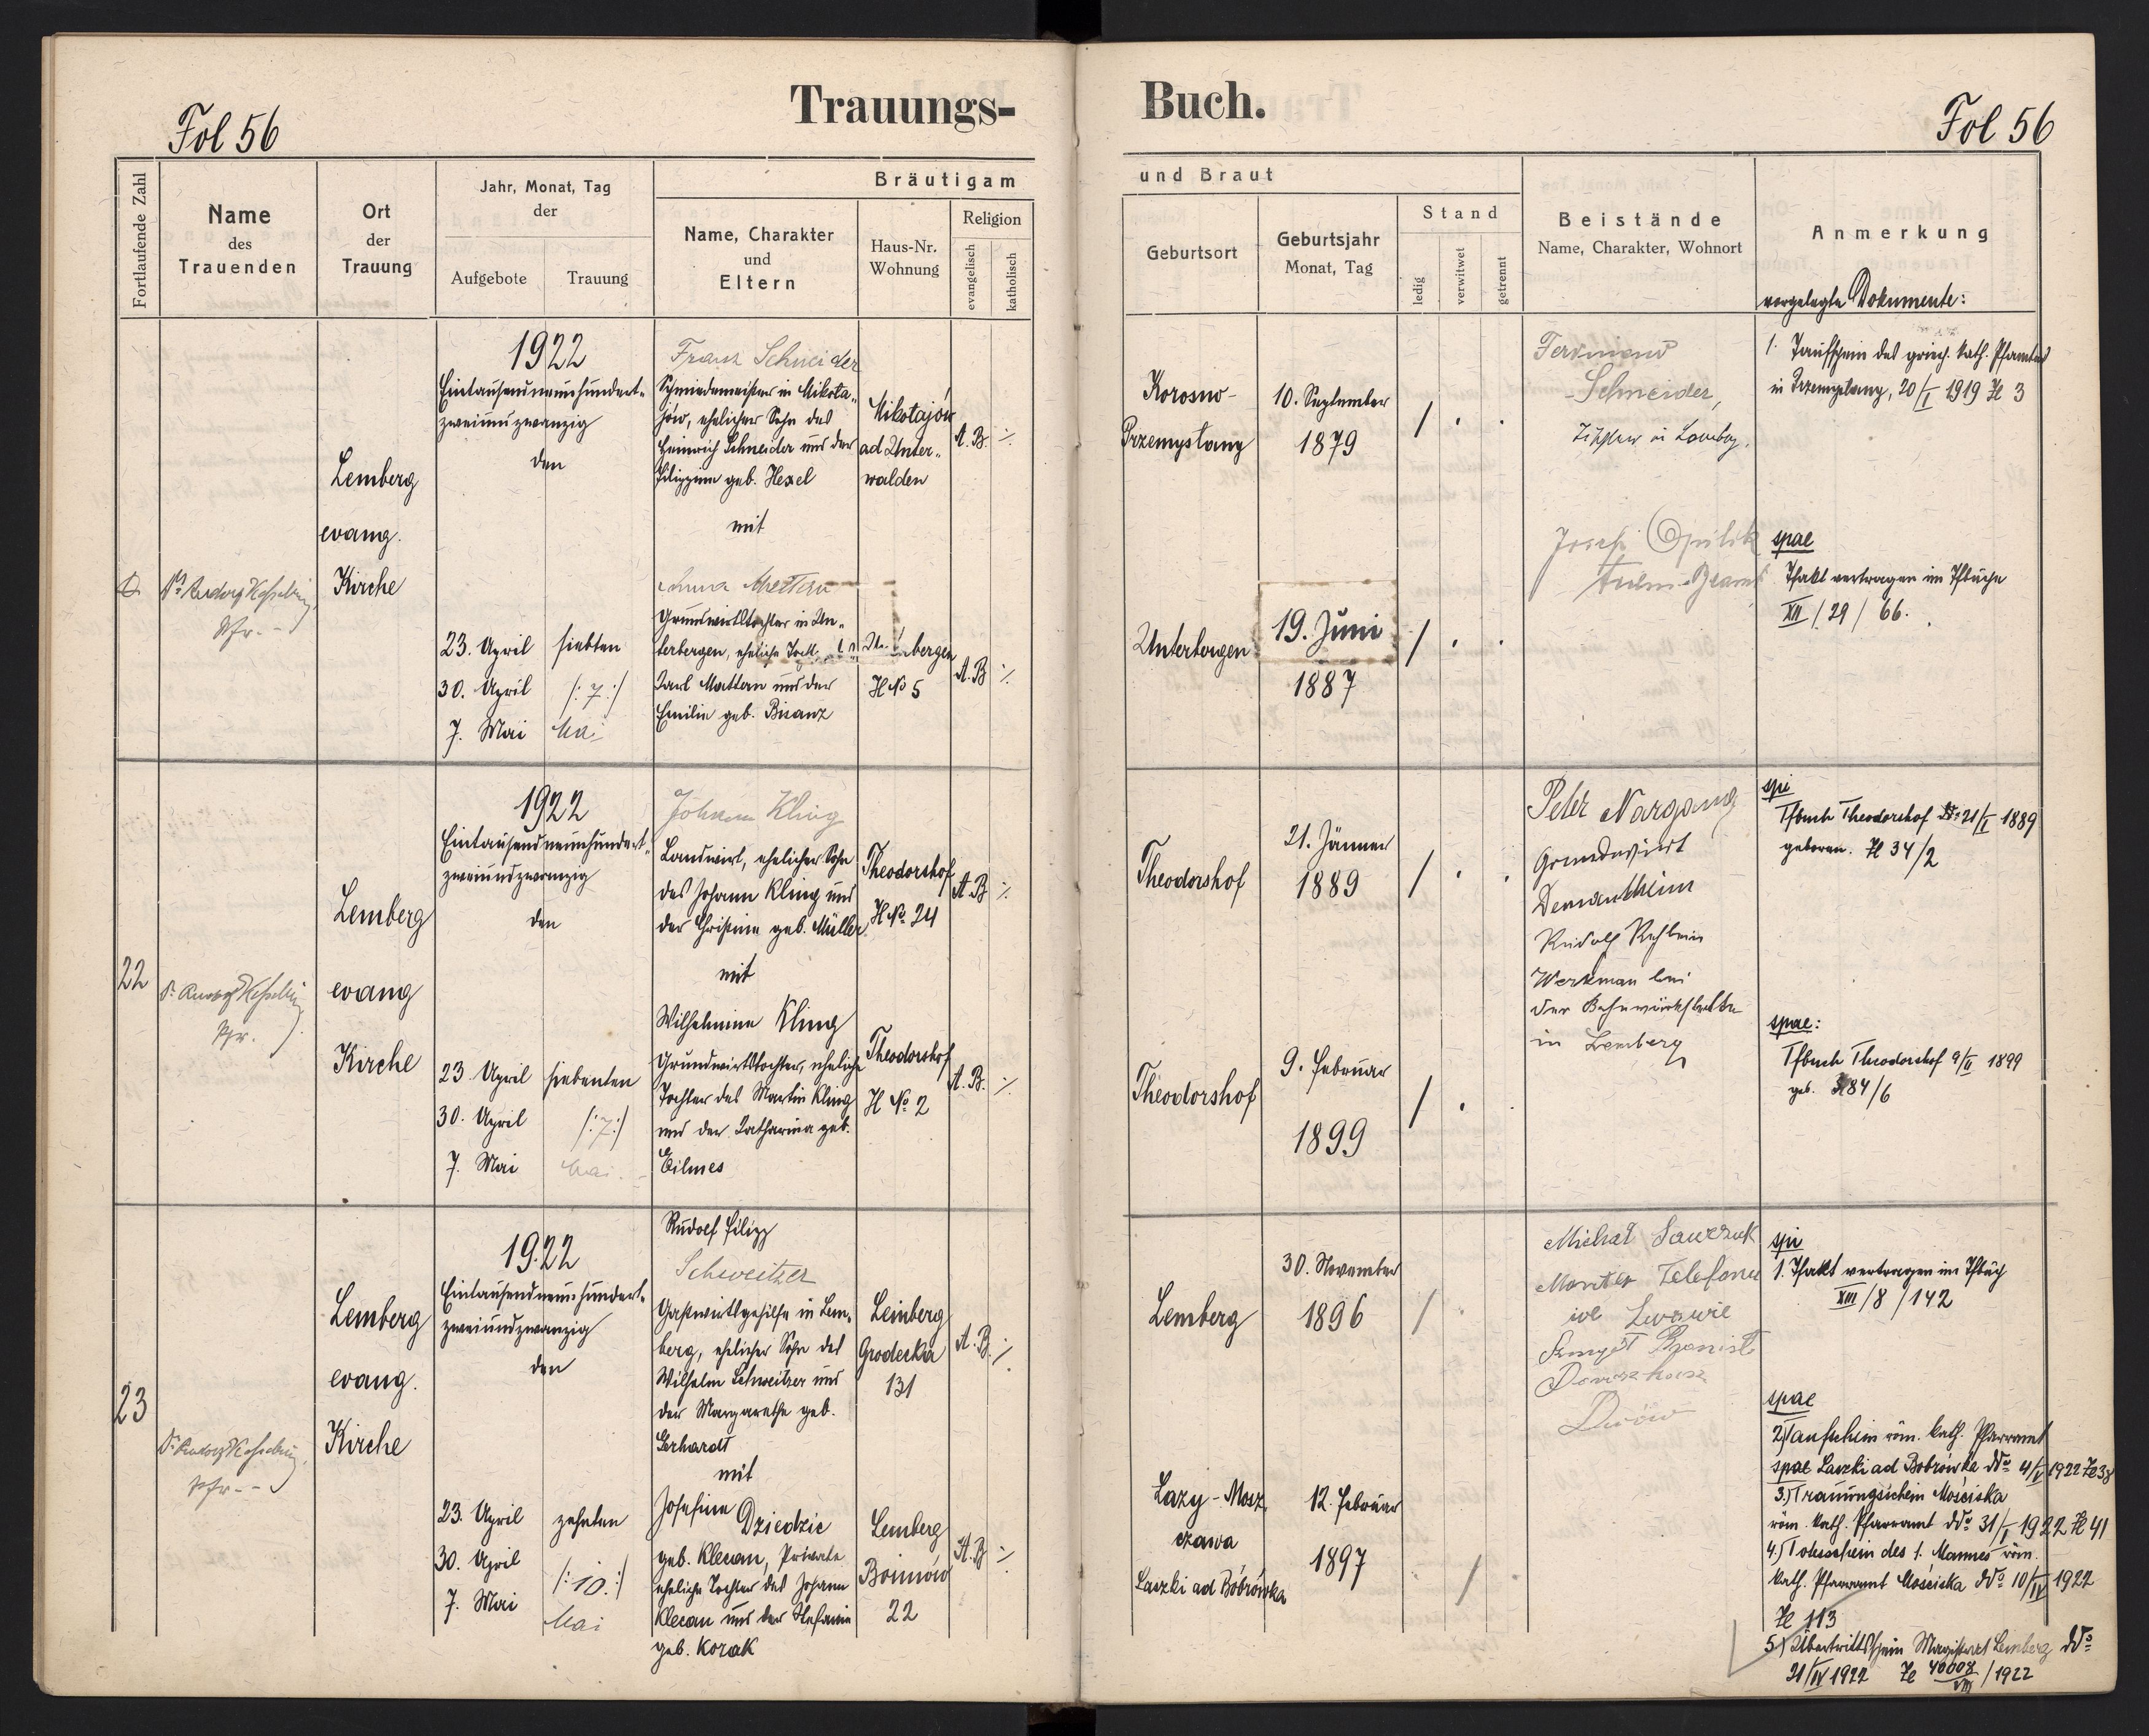 Fol 56
Trauungs-
Buch.
Fol 56
Fortlaufende Zahl
Name
des
Trauenden
Ort
der
Trauung
Jahr, Monat, Tag
der
Aufgebote
Trauung
Bräutigam
Name, Charakter
und
Eltern
Haus-Nr.
Wohnung
Religion
evangelisch
katholisch
und Braut
Geburtsort
Geburtsjahr
Monat, Tag
Stand
ledig
verwitwet
getrennt
Beistände
Name, Charakter, Wohnort
Anmerkung
vorgelegte Dokumente:
Lemberg
evang.
Kirche
1922
Eintausendneunhundert-
zweiundzwanzig
den
23. April
30. April
7. Mai
siebten
/:7:/
Mai
Franz Schneider
Schmiedemeister in Mikola-
jów, ehelicher Sohn des
Heinrich Schneider und der
Filippine geb. Hexel
mit
Grundwirtstochter in Un-
terbergen, eheliche
Karl Mattern und der
Emilie geb. Bisanz
Mikołajów
ad Unter-
walden
H No 5
A. B.
A. B
Korosno-
Przemyslany
10. September
1879
Unterbergen
19. Juni
1887
Ferdinand
Schneider,
in Lemberg.
Josef
1. Taufschein des griech. kath. Pfarramtes
in Przemyslany, 20/I 1919 Zl 3
spae
Tfakt vertragen im Tfbuche
XII / 29 / 66.
22
Pfr.
Lemberg
evang
Kirche
1922
Eintausendneunhundert-
zweiundzwanzig
den
23 April
30. April
7. Mai
siebenten
/:7:/
Mai
Johann Kling
Landwirt, ehelicher Sohn
des Johann Kling und
der Christine geb. Müller
mit
Wilhelmine Kling
Grundwirtstochter, eheliche
Tochter des Martin Kling
und der Katharina geb.
Eilmes
Theodorshof
H No. 24
Theodorshof
H No. 2
A. B
A. B.
Theodorshof
21. Jänner
1889
Theodorshof
9. Februar
1899
Peter Nargang
Grundwirt
Dernantheim
Rudolf Rehbein
Werkman bei
der Bahnwerkstätte
in Lemberg
spi
Tfbuch Theodorshof 21/I 1889
geboren. Zl 34/2
spae:
Tfbuch Theodorshof 9/II 1899
geb. 84/6
23
Lemberg
evang.
Kirche
1922
Eintausendneunhundert-
zweiundzwanzig
den
23. April
30. April
7. Mai
zehnten
/:10:/
Mai
Rudolf Filipp
Schweitzer
Gastwirtsgehilfe in Lem-
berg, ehelicher Sohn des
Wilhelm Schweitzer und
der Margarethe geb.
Gerhardt
mit
Josefine Dziedzic
geb. Klecan, Private
eheliche Tochter des Johann
Klecan und der Stefanie
geb. Korak
Lemberg
Grodecka
131
Lemberg
Boimów
22
A. B.
A. B
Lemberg
30. November
1896
Lazy-Mosz
czawa
Laszki ad Bobrówka
12. Februar
1897
Michał
Monter Telefonu
we Lwowie
Lwów
spi
1. Tfakt vertragen im Tfbuch
XIII / 8 / 142
spae
2) Taufschein röm. kath. Pfarramt
spae Laszki ad Bobrówka ddo 4/V 1922 Zl 38
3.) Trauungsschein Mościska
röm. kath. Pfarramt ddo 31/I 1922 Zl 41
4.) Totenschein des 1. Mannes röm.
kath. Pfarramt Mościska ddo 10/IV 1922
Zl 113
5) Übertrittschein Magistrat Lemberg ddo
21/IV 1922 Zl 40008/VIII / 1922